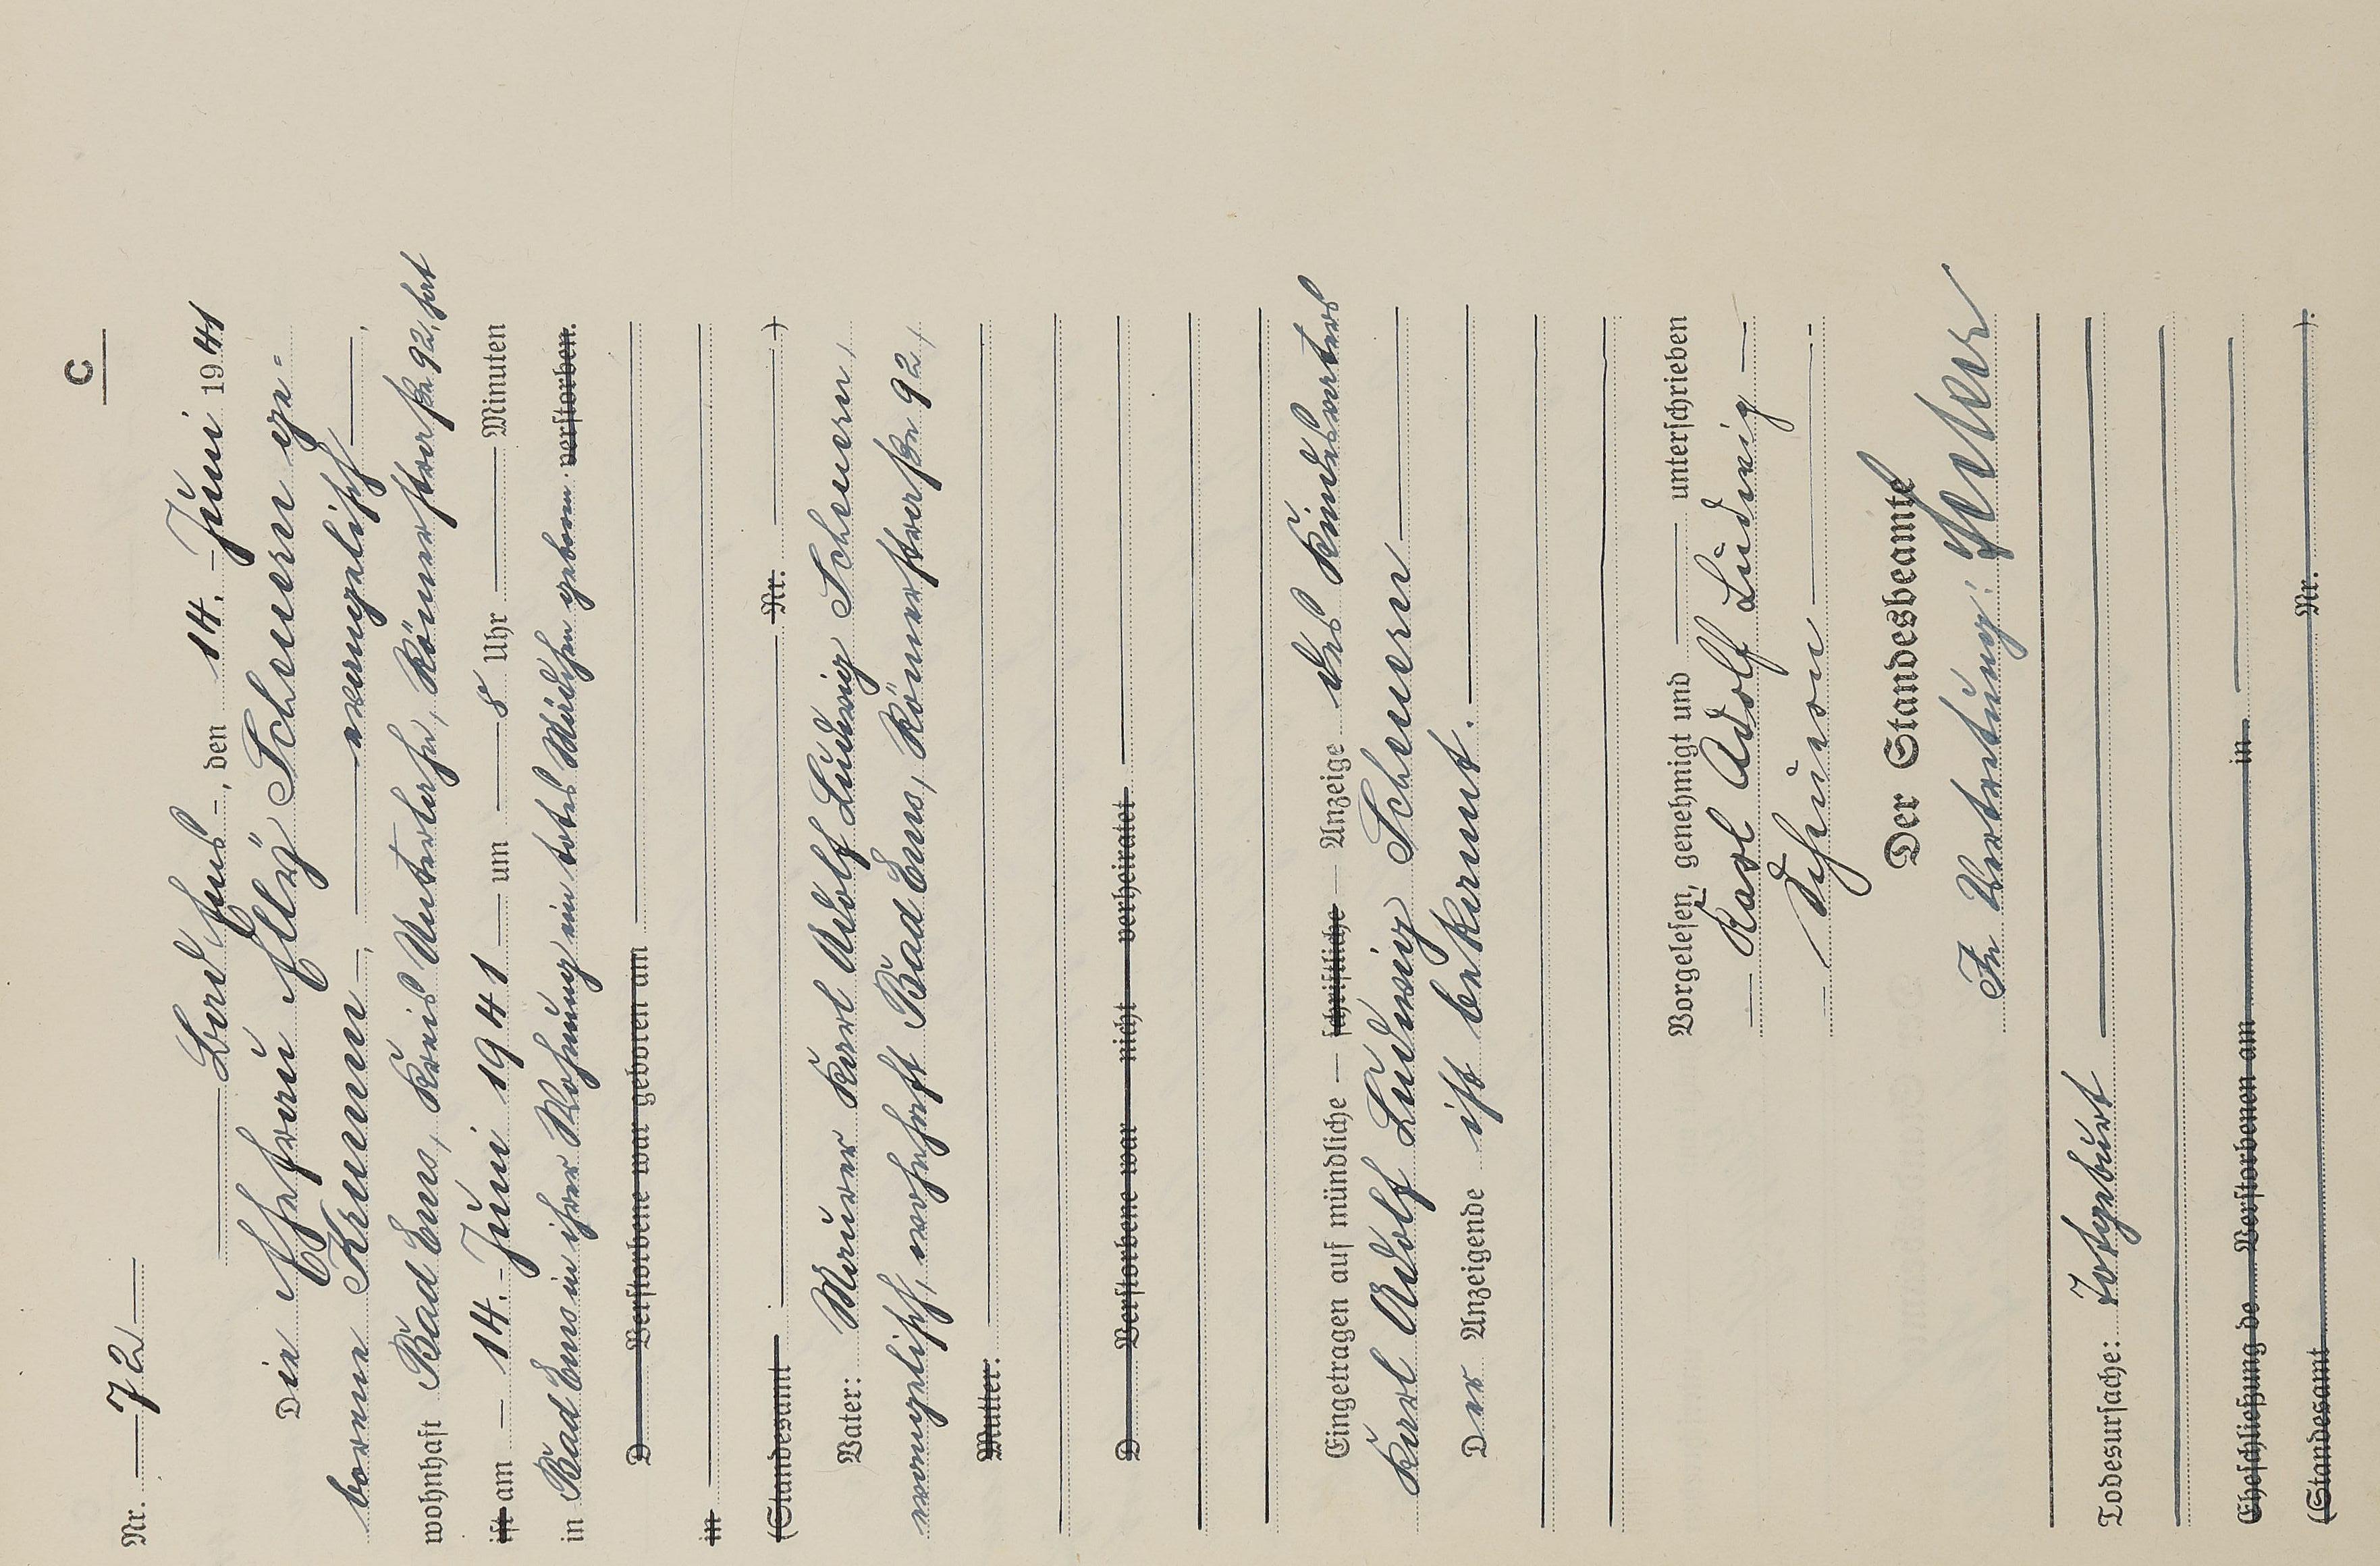 C
Nr. 72
Bad Ems, den 14. Juni 1941
Die Ehefrau Elly Scheuern ge=
borene Krumm, evangelisch,
wohnhaft Bad Ems, Kreis Unterlahn, Römerstraße 92, hat
ist am 14. Juni 1941 um 8 Uhr Minuten
in Bad Ems in ihrer Wohnung ein totes Mädchen geboren. verstorben.
D Verstorbene war geboren am
in
(Standesamt Nr. )
Vater: Maurer Karl Adolf Ludwig Scheuern,
evangelisch, wohnhaft Bad Ems, Römerstraße 92,
Mutter:
D Verstorbene war – nicht – verheiratet
Eingetragen auf mündliche – schriftliche – Anzeige des Kindesvaters
Karl Adolf Ludwig Scheuern
Der Anzeigende ist bekannt.
Vorgelesen, genehmigt und unterschrieben
Karl Adolf Ludwig
Scheuern
Der Standesbeamte
In Vertretung:
Todesursache: Totgeburt
Eheschließung de Verstorbenen am in
(Standesamt Nr. ).